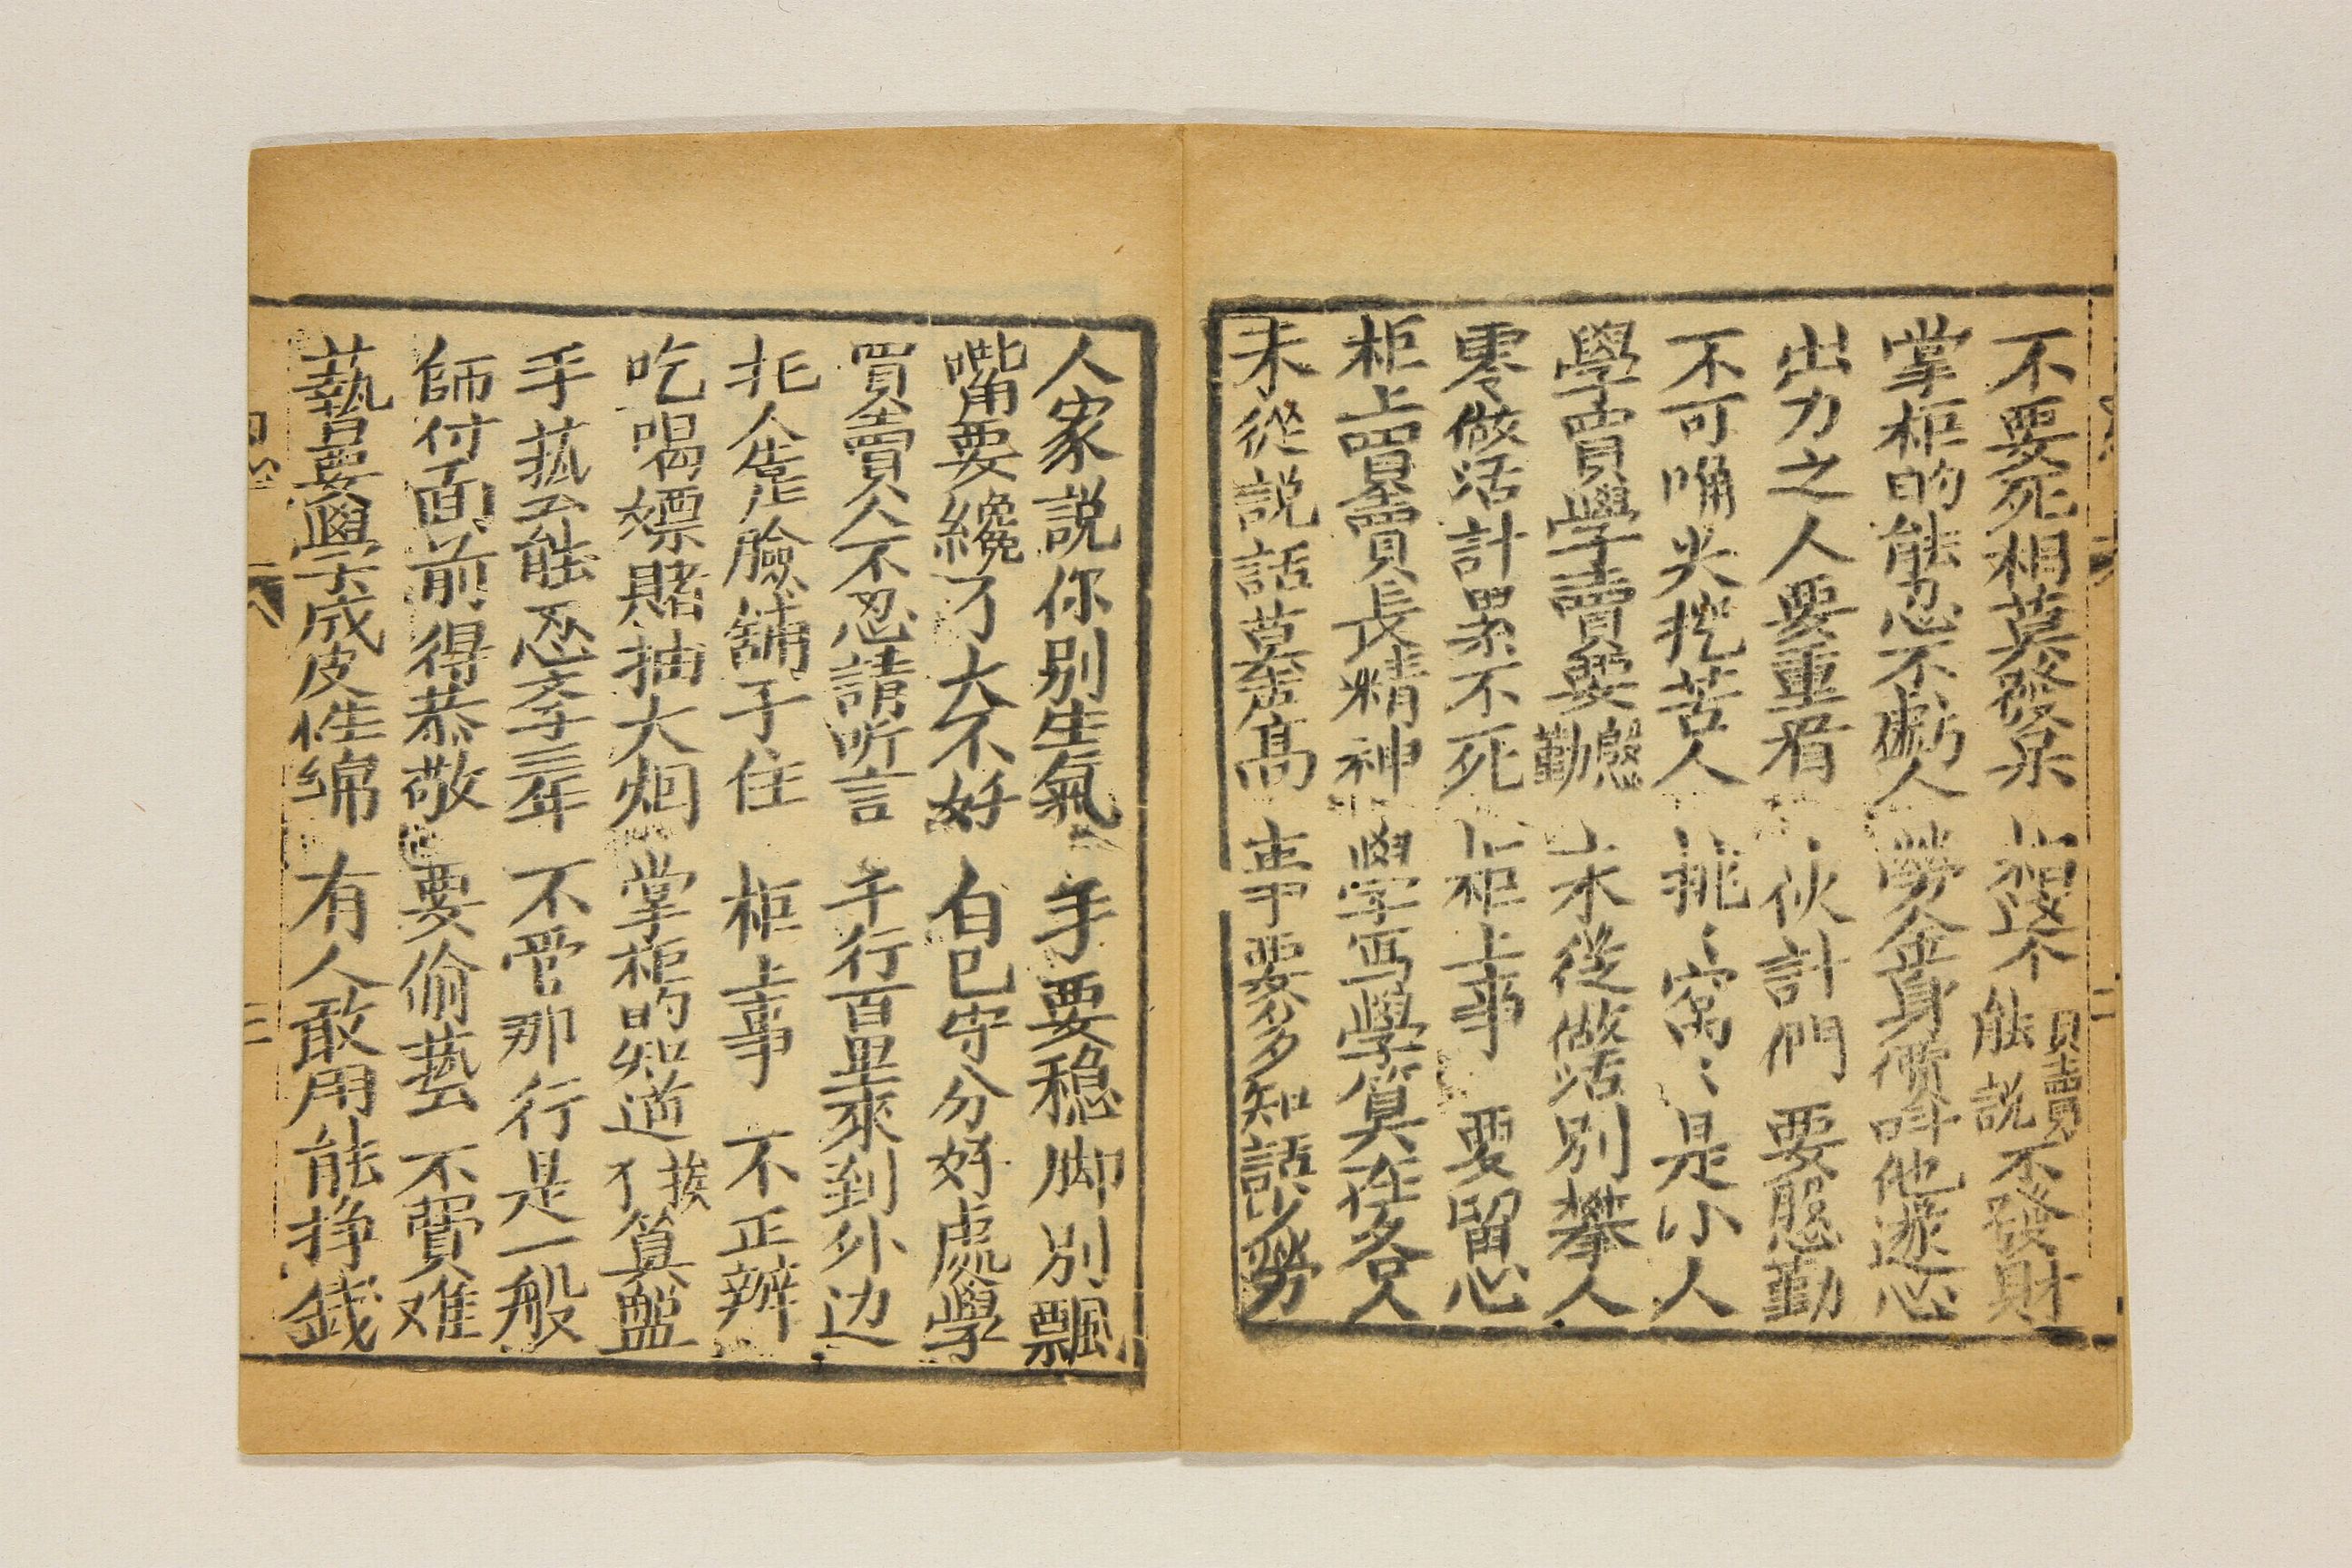 不要死相莫發呆 招攬不能說買賣不發財
掌柜的能忍不虧人 勞金身價叫他遂心
出力之人要重看 伙計們要慇勤
不可嘴尖挖苦人 挑〻窩〻是小人
學買學賣要慇勤 未從做活別攀人
零做活計累不死 柜上事要留心
柜上買賣長精神 學寫學算在各人
未從說話莫聲高 事要多知話少勞
人家說你別生氣 手要穩脚別飄
嘴要纔了大不好 自己守分好處學
買賣人不忍請听言 千行百里來到外边
人靠臉舖子住 柜上事不正辦
吃喝嫖賭抽大烟 掌柜的知道了挨算盤
手藝人能忍李三年 不管那行是一般
師付面前得恭敬 要偷藝不費难
藝要學成皮性綿 有人敢用能掙錢